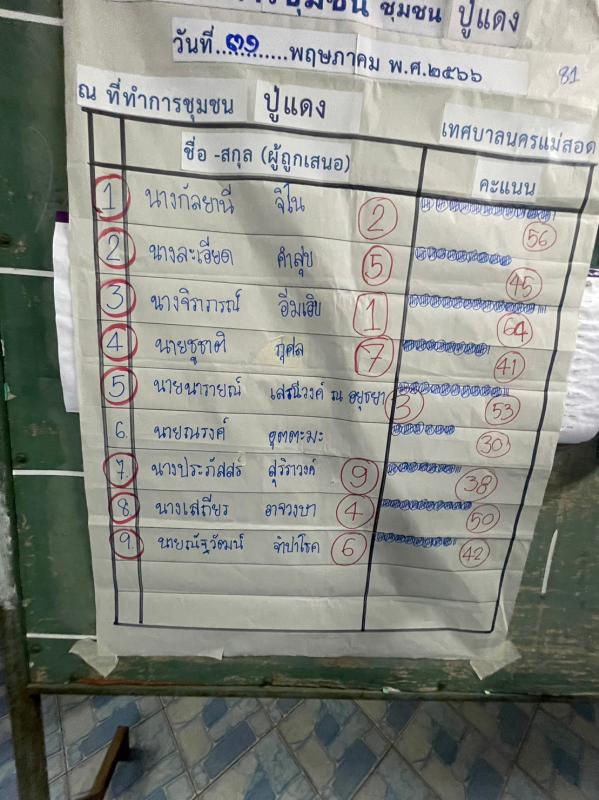 ชุมชน ชุมชน ปู่แดง
วันที่...๓๑...พฤษภาคม พ.ศ.๒๕๖๖
81
ณ ที่ทำการชุมชน ปู่แดง
เทศบาลนครแม่สอด
ชื่อ -สกุล (ผู้ถูกเสนอ) คะแนน
1 นางกัลยาณี จิโน 2 56
2 นางละเอียด คำสุข 5 45
3 นางจิราภรณ์ อิ่มเอิบ 1 64
4 นายชูชาติ กุศล 7 41
5 นายนารายณ์ เสนีวงค์ ณ อยุธยา 3 53
6. นายณรงค์ อุตตะมะ 30
7. นางประภัสสร์ สุริราวงค์ 9 38
8 นางเสถียร อาจวงษา 4 50
9. นายณัฐวัฒน์ จำปาโชค 6 42